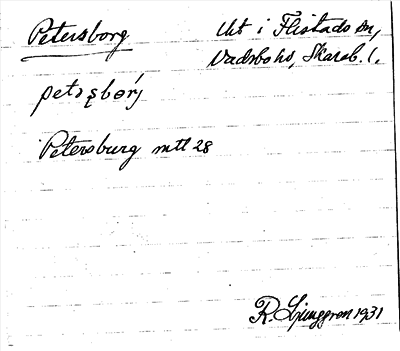 Petersborg
Uht i Flistads sn,
Vadsbo hd, Skarab. l.
petsʂbor̡j
Petersburg mtl 28
R. Ljunggren 1931